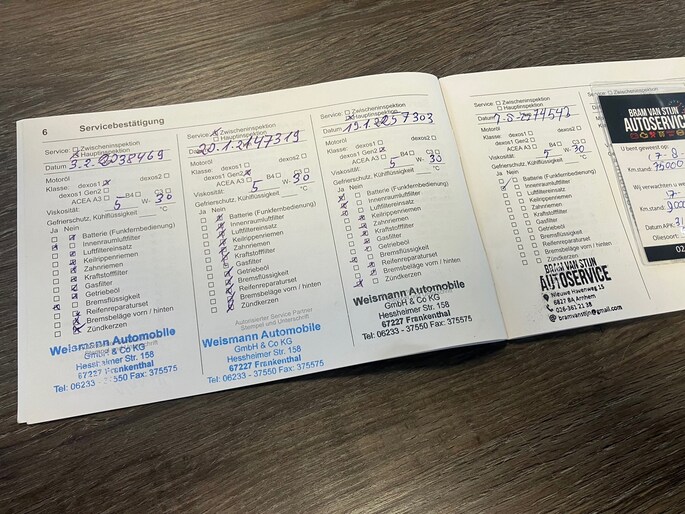 6 Servicebestätigung
Service: Zwischeninspektion
Hauptinspektion
Datum 3.2.2038469
Motoröl
Klasse: dexos1 dexos2
dexos1 Gen2
ACEA A3 B4 C3
Viskosität: 5 W- 30
Gefrierschutz, Kühlflüssigkeit °C
Ja Nein
Batterie (Funkfernbedienung)
Innenraumluftfilter
Luftfiltereinsatz
Keilrippenriemen
Zahnriemen
Kraftstofffilter
Gasfilter
Getriebeöl
Bremsflüssigkeit
Reifenreparaturset
Bremsbeläge vorn / hinten
Zündkerzen
Weismann Automobile
GmbH & Co KG
Hessheimer Str. 158
67227 Frankenthal
Tel: 06233 - 37550 Fax: 375575
Service: Zwischeninspektion
Hauptinspektion
Datum 20.1.2147319
Motoröl
Klasse: dexos1 dexos2
dexos1 Gen2
ACEA A3 B4 C3
Viskosität: 5 W- 30
Gefrierschutz, Kühlflüssigkeit °C
Ja Nein
Batterie (Funkfernbedienung)
Innenraumluftfilter
Luftfiltereinsatz
Keilrippenriemen
Zahnriemen
Kraftstofffilter
Gasfilter
Getriebeöl
Bremsflüssigkeit
Reifenreparaturset
Bremsbeläge vorn / hinten
Zündkerzen
Autorisierter Service Partner
Stempel und Unterschrift
Weismann Automobile
GmbH & Co KG
Hessheimer Str. 158
67227 Frankenthal
Tel: 06233 - 37550 Fax: 375575
Service: Zwischeninspektion
Hauptinspektion
Datum 19.1.2257303
Motoröl
Klasse: dexos1 dexos2
dexos1 Gen2
ACEA A3 B4 C3
Viskosität: 5 W- 30
Gefrierschutz, Kühlflüssigkeit °C
Ja Nein
Batterie (Funkfernbedienung)
Innenraumluftfilter
Luftfiltereinsatz
Keilrippenriemen
Zahnriemen
Kraftstofffilter
Gasfilter
Getriebeöl
Bremsflüssigkeit
Reifenreparaturset
Bremsbeläge vorn / hinten
Zündkerzen
Weismann Automobile
GmbH & Co KG
Hessheimer Str. 158
67227 Frankenthal
Tel: 06233 - 37550 Fax: 375575
Service: Zwischeninspektion
Hauptinspektion
Datum
Motoröl
Klasse: dexos1 dexos2
dexos1 Gen2
ACEA A3 B4 C3
Viskosität: 5 W- 30
Gefrierschutz, Kühlflüssigkeit °C
Ja Nein
Batterie (Funkfernbedienung)
Innenraumluftfilter
Luftfiltereinsatz
Keilrippenriemen
Zahnriemen
Kraftstofffilter
Gasfilter
Getriebeöl
Bremsflüssigkeit
Reifenreparaturset
Bremsbeläge vorn / hinten
Zündkerzen
BRAM VAN STIJN
AUTOSERVICE
Nieuwe Havenweg 15
6827 BA Arnhem
026-361 21 38
bramvanstijn@gmail.com
Service
Datum
Motoröl
Klasse
BRAM VAN STIJN
AUTOSERVICE
U bent geweest op:
7-8
Km.stand: 75000
Wij verwachten u
Km.stand:
Datum APK:
Oliesoort:
02